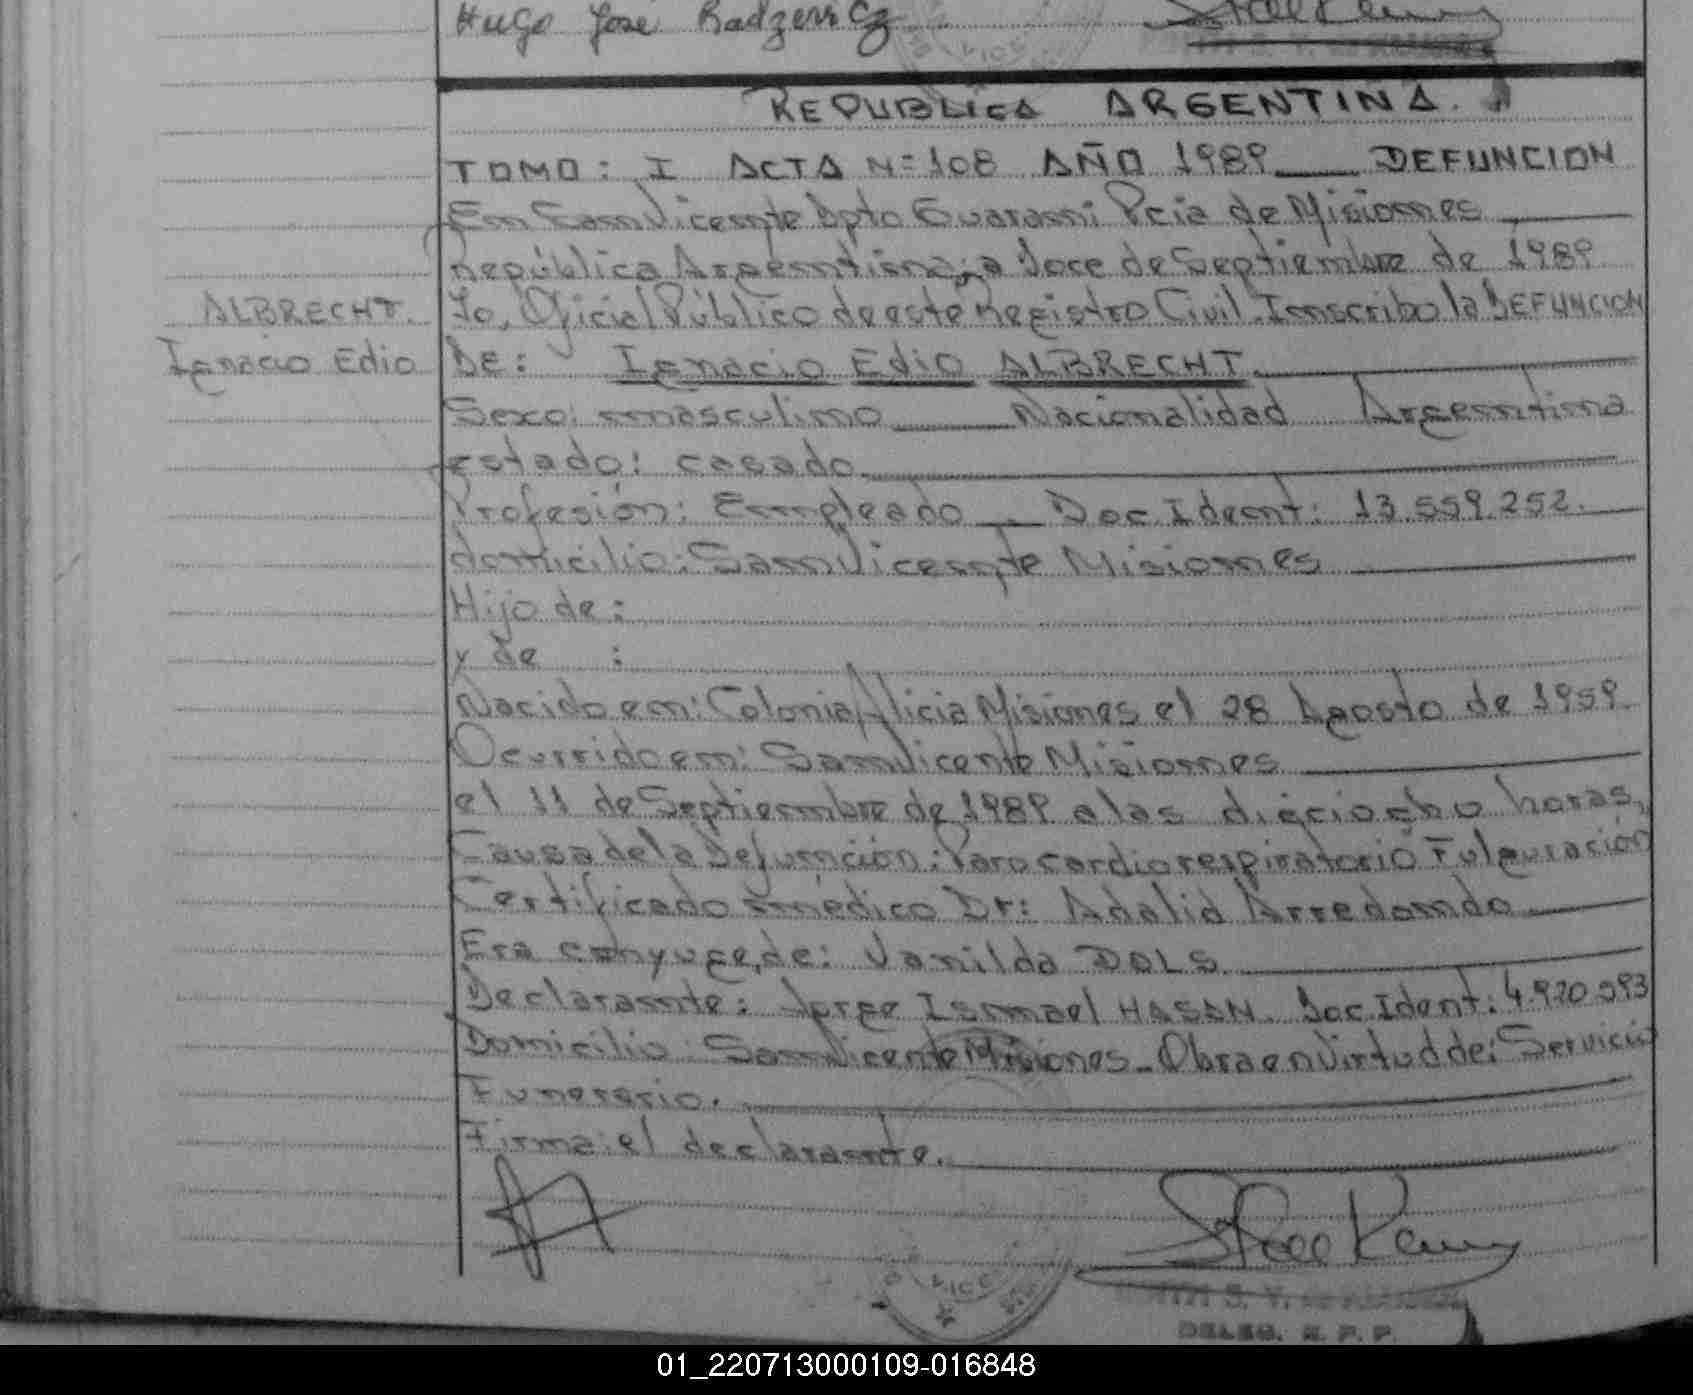 Hugo José Radzewicz
REPUBLICA ARGENTINA.
TOMO: I ACTA N=108 AÑO 1989 DEFUNCION
En San Vicente Dpto Guarani Pcia de Misiones
República Argentina, a Doce de Septiembre de 1989
ALBRECHT.
Ignacio Edio
Yo, Oficial Público de este Registro Civil. Inscribo la DEFUNCION
De: Ignacio Edio ALBRECHT.
Sexo: masculino Nacionalidad Argentina
estado: casado.
Profesión: Empleado Doc Ident: 13.559.252.
domicilio: San Vicente Misiones
Hijo de:
y de :
Nacido en: Colonia Alicia Misiones el 28 Agosto de 1959.
Ocurrido en: San Vicente Misiones
el 11 de Septiembre de 1989 a las dieciocho horas,
Causa de la Defunción: Paro cardiorespiratorio Fulguración
Certificado médico Dr: Adalid Arredondo
Era conyuge de: Vanilda DOLS
Declarante: Jorge Ismael HASAN. Doc Ident: 4.920.593
Domicilio: San Vicente Misiones - Obra en Virtud de: Servicio
Funerario.
Firma: el declarante.
DELEG. R. P. P.
01_220713000109-016848